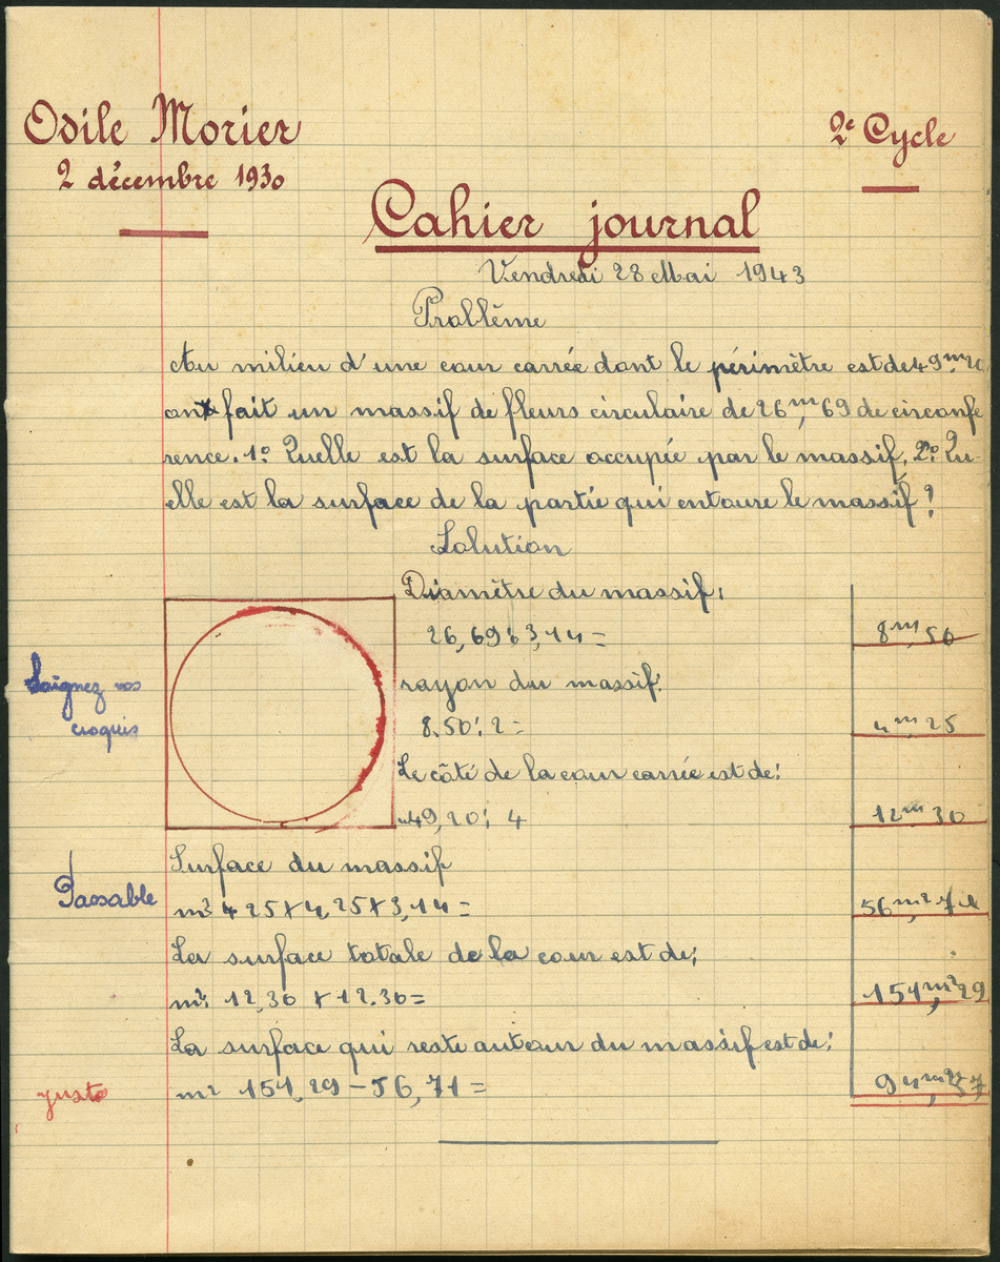 Odile Morier
2e Cycle
2 décembre 1930
Cahier journal
Vendredi 28 Mai 1943
Problème
Au milieu d'une cour carrée dont le périmètre est de 49m 20
on fait un massif de fleurs circulaire de 26m,69 de circonfé
rence. 1º Quelle est la surface occupée par le massif, 2º Qu-
elle est la surface de la partie qui entoure le massif?
Solution
Diamètre du massif:
26,69 : 3,14 =
8m,50
Soignez vos
croquis
rayon du massif:
8,50 : 2 =
4m,25
Le côté de la cour carrée est de:
49,20 : 4
12m 30
Surface du massif
Passable
m2 4 25 x 4,25 x 3,14 =
56m2,71
La surface totale de la cour est de;
m2: 12,30 x 12.30 =
151m2,29
La surface qui reste autour du massif est de:
juste
m2 151,29 - 56,71 =
94m2,57